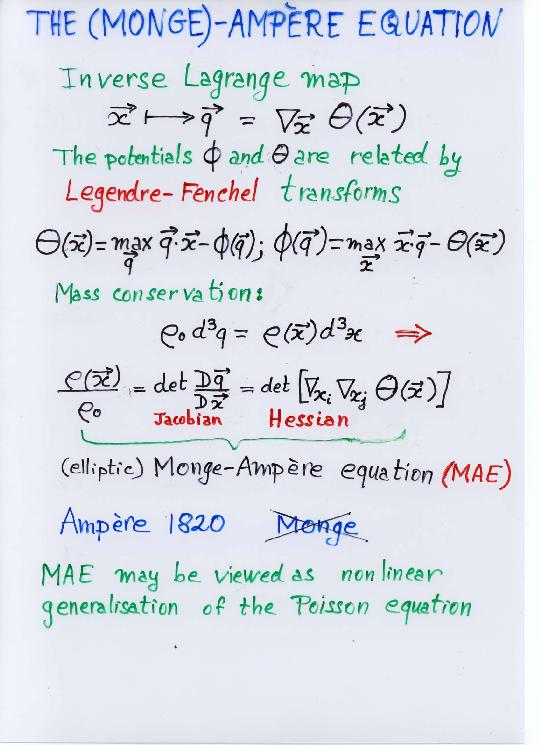 THE (MONGE)-AMPÈRE EQUATION
Inverse Lagrange map
x⃗ ⟼ q⃗ = ∇x⃗ Θ(x⃗)
The potentials ϕ and Θ are related by
Legendre-Fenchel transforms
Θ(x⃗) = max q⃗ q⃗·x⃗ - ϕ(q⃗); ϕ(q⃗) = max x⃗ x⃗·q⃗ - Θ(x⃗)
Mass conservation:
ρ₀ d³q = ρ(x⃗) d³x ⇒
ρ(x⃗)/ρ₀ = det Dq⃗/Dx⃗ = det [∇xᵢ ∇xⱼ Θ(x⃗)]
Jacobian Hessian
(elliptic) Monge-Ampère equation (MAE)
Ampère 1820 Monge
MAE may be viewed as nonlinear
generalisation of the Poisson equation